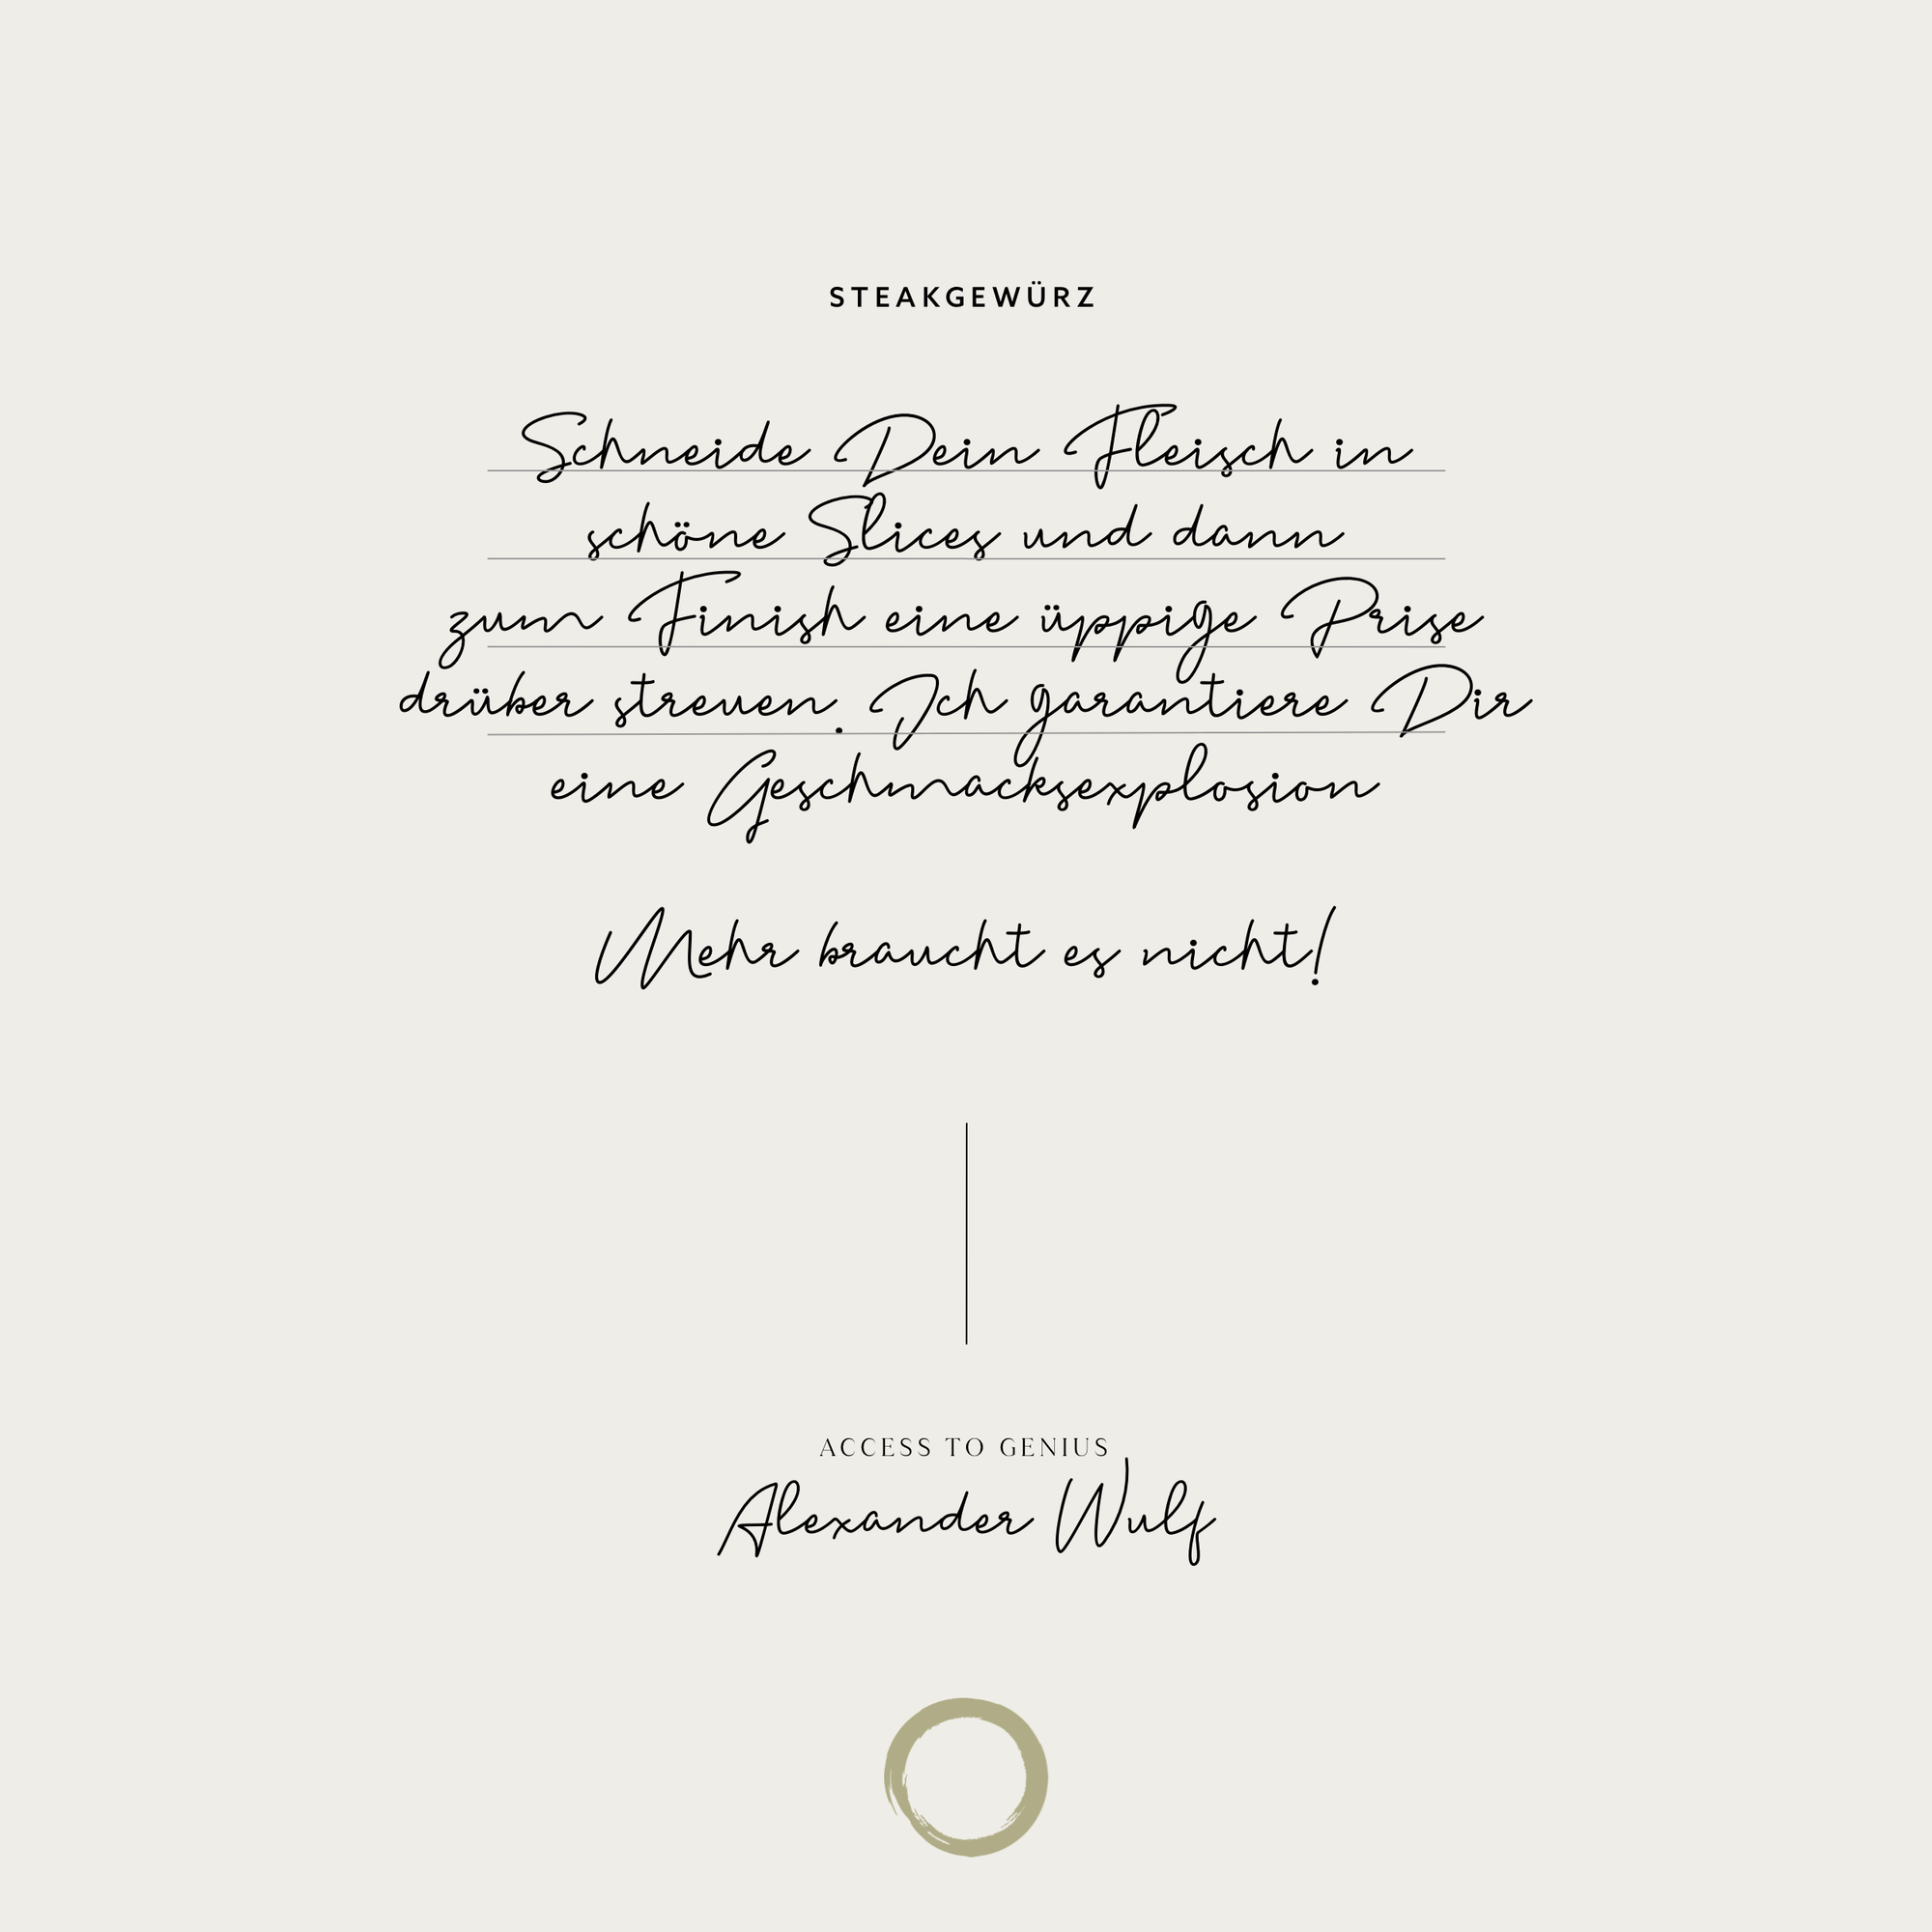 STEAKGEWÜRZ
Schneide Dein Fleisch in
schöne Slices und dann
zum Finish eine üppige Prise
drüber streuen. Ich garantiere Dir
eine Geschmacksexplosion
Mehr braucht es nicht!
ACCESS TO GENIUS
Alexander Wulf